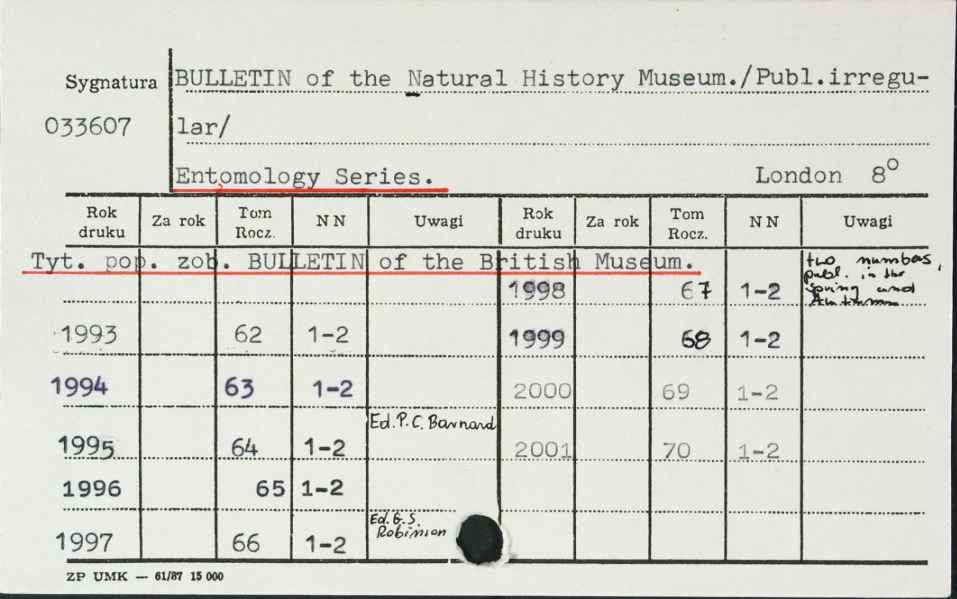 Sygnatura BULLETIN of the Natural History Museum./Publ.irregu-
033607 lar/
Entomology Series. London 8°
Rok druku Za rok Tom Rocz. NN Uwagi Rok druku Za rok Tom Rocz. NN Uwagi
Tyt. pop. zob. BULLETIN of the British Museum.
1998 67 1-2 two numbers, publ. in the spring and Autumn
1993 62 1-2 1999 68 1-2
1994 63 1-2 2000 69 1-2
1995 64 1-2 Ed. P. C. Barnard 2001 70 1-2
1996 65 1-2
1997 66 1-2 Ed. G. S. Robinson
ZP UMK — 61/87 15 000